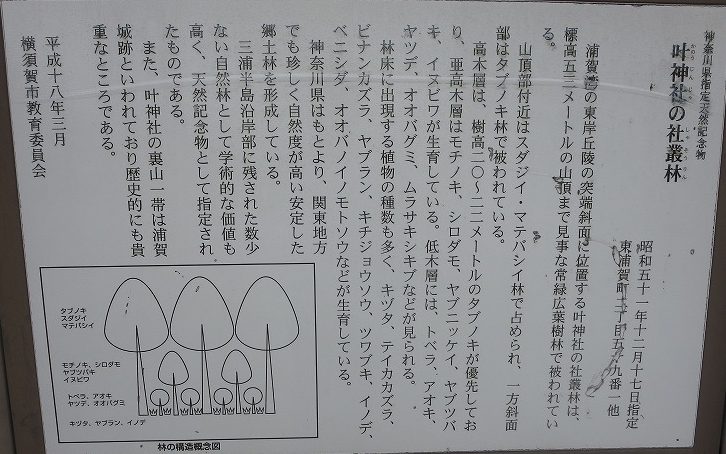 神奈川県指定天然記念物
叶神社の社叢林
かのう じん じゃ しゃ そう りん
昭和五十一年十二月十七日指定
東浦賀町二丁目五十九番一他
浦賀港の東岸丘陵の突端斜面に位置する叶神社の社叢林は、
標高五三メートルの山頂まで見事な常緑広葉樹林で被われてい
る。
山頂部付近はスダジイ・マテバシイ林で占められ、一方斜面
部はタブノキ林で被われている。
高木層は、樹高二〇〜二二メートルのタブノキが優先してお
り、亜高木層はモチノキ、シロダモ、ヤブニッケイ、ヤブツバ
キ、イヌビワが生育している。低木層には、トベラ、アオキ、
ヤツデ、オオバグミ、ムラサキシキブなどが見られる。
林床に出現する植物の種数も多く、キヅタ、テイカカズラ、
ビナンカズラ、ヤブラン、キチジョウソウ、ツワブキ、イノデ、
ベニシダ、オオバノイノモトソウなどが生育している。
神奈川県はもとより、関東地方
でも珍しく自然度が高い安定した
郷土林を形成している。
三浦半島沿岸部に残された数少
ない自然林として学術的な価値も
高く、天然記念物として指定され
たものである。
また、叶神社の裏山一帯は浦賀
城跡といわれており歴史的にも貴
重なところである。
平成十八年三月
横須賀市教育委員会
タブノキ
スダジイ
マテバシイ
モチノキ、シロダモ
ヤブツバキ
イヌビワ
トベラ、アオキ
ヤツデ、オオバグミ
キヅタ、ヤブラン、イノデ
林の構造概念図